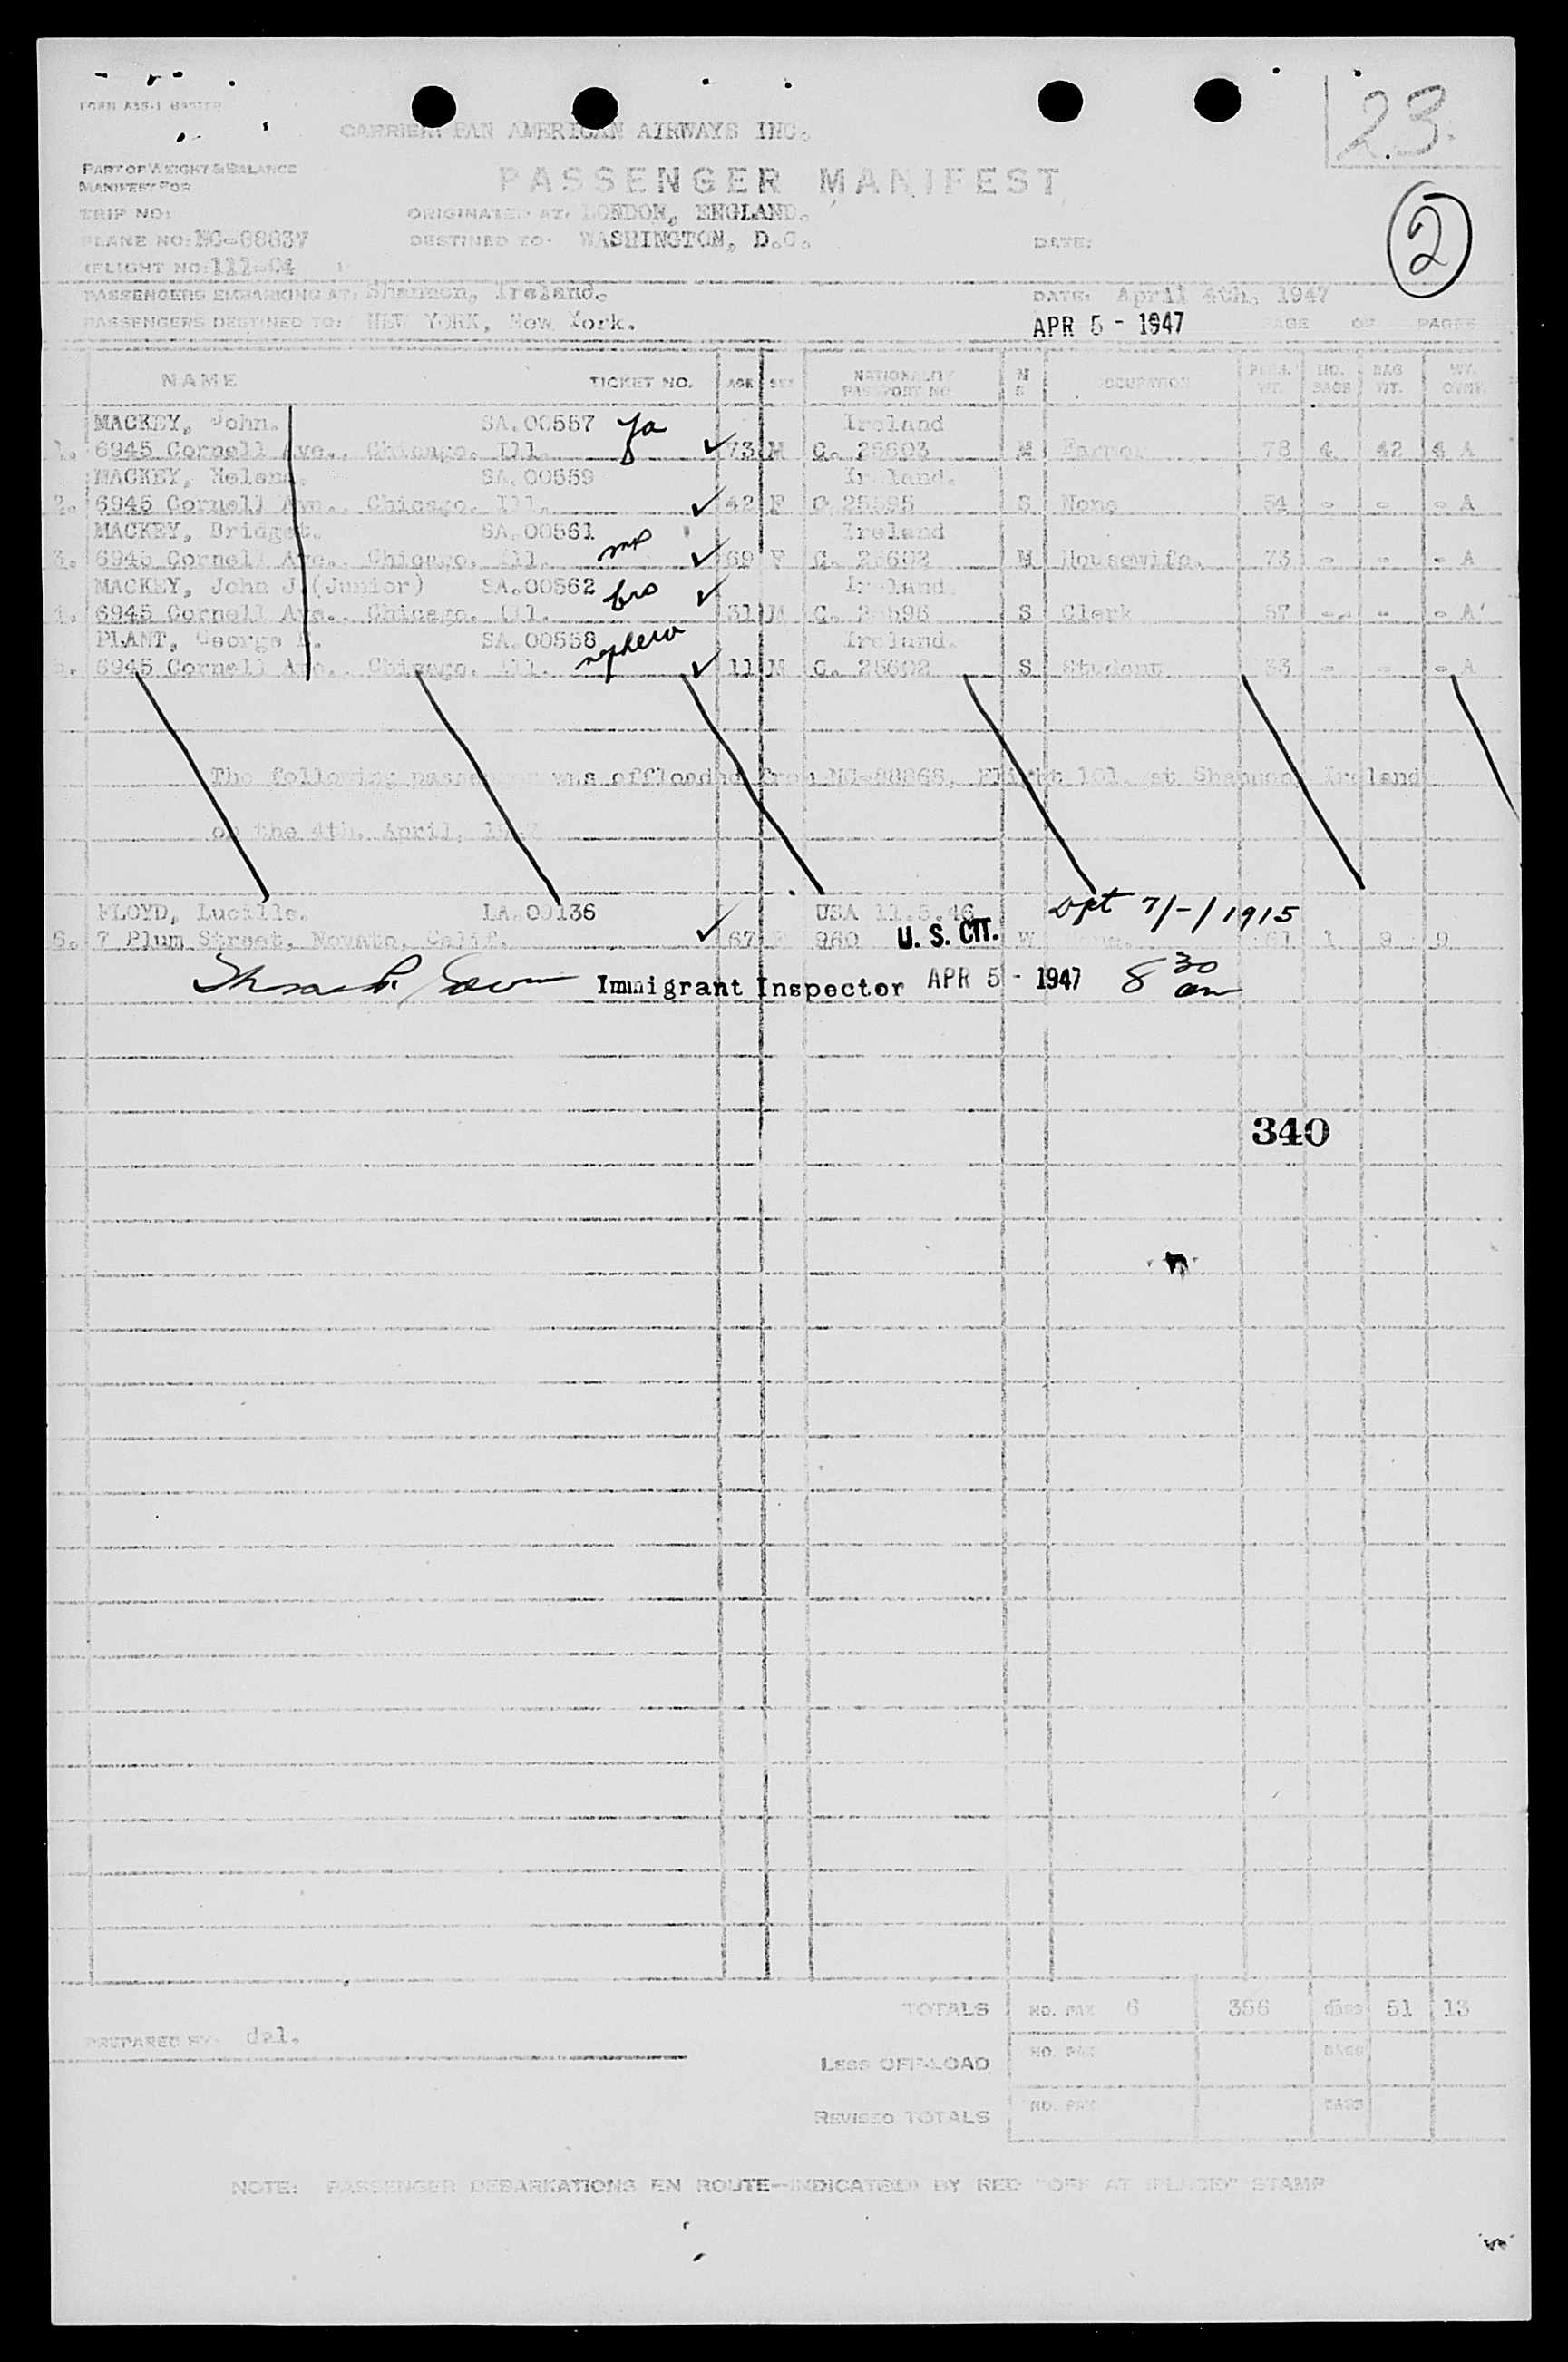 FORM ASS-1 MASTER
23
CARRIER: PAN AMERICAN AIRWAYS INC.
PART OF WEIGHT & BALANCE
MANIFEST FOR
PASSENGER MANIFEST
2
TRIP NO:
ORIGINATED AT: LONDON, ENGLAND.
PLANE NO: NC-88837
DESTINED TO: WASHINGTON, D.C.
DATE:
FLIGHT NO: 112-04
PASSENGERS EMBARKING AT: Shannon, Ireland.
DATE: April 4th, 1947
PASSENGERS DESTINED TO: NEW YORK, New York.
APR 5 - 1947
PAGE OF PAGES
NAME TICKET NO. AGE SEX NATIONALITY PASSPORT NO M S OCCUPATION NO. BAGS BAG WT.
MACKEY, John. SA.00557 fa Ireland
1. 6945 Cornell Ave., Chicago. Ill. 73 M C. 25603 M Farmer 78 4 42 4 A
MACKEY, Helena. SA.00559 Ireland.
2. 6945 Cornell Ave., Chicago. Ill. 42 F C 25595 S None 54 - - - A
MACKEY, Bridget. SA.00561 Ireland
3. 6945 Cornell Ave., Chicago. Ill. 69 F C. 25602 M Housewife. 73 - - - A
MACKEY, John J.(Junior) SA.00562 bro Ireland
4. 6945 Cornell Ave., Chicago. Ill. 31 M C. S Clerk 57 - - - A
PLANT, George SA.00558 nephew Ireland.
5. 6945 Cornell Ave., Chicago. Ill. 11 M C. 25602 S Student 33 - - - A
The following passenger was offloaded from NC-88868, Flight 101. at Shannon Ireland
on the 4th. April, 1947
FLOYD, Lucille. LA.09136 USA 11.5.46 7/-/1915
6. 7 Plum Street, Novato, Calif. 67 F 960 U. S. CIT. W 61 1 9 9
Immigrant Inspector APR 5 - 1947 8 30 am
340
TOTALS NO. PAX 6 356 BAGS 51 13
PREPARED BY: dal.
LESS OFF-LOAD NO. PAX BAGS
REVISED TOTALS NO. PAX BAGS
NOTE: PASSENGER DEBARKATIONS EN ROUTE—INDICATED BY RED "OFF AT (PLACE)" STAMP